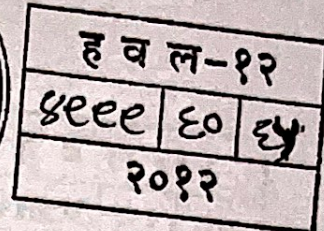 ह व ल-१२
४९९९ ६० ६५
२०१२